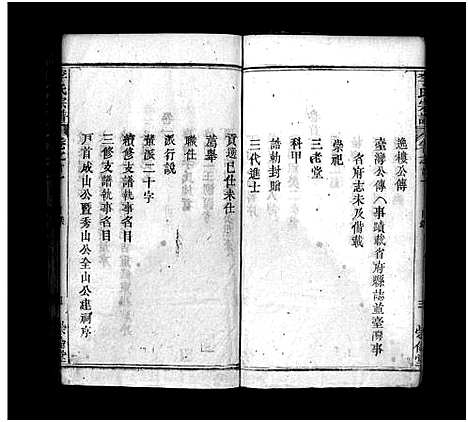 逸樓公傳
臺灣公傳 事蹟載省府縣誌並臺灣事
省府志未及備載
三老堂
崇祀
科甲
誥勅封贈
三代進士
貢選已仕未仕
薦舉
職仕
派行說
華派二十字
續修支譜執事名目
三修支譜執事名目
戸首威山公暨秀山公全山公建祠序